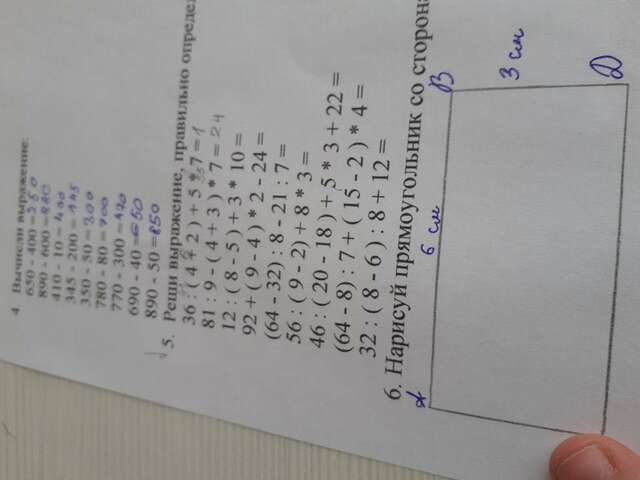 4 Вычисли выражение:
650 - 400 = 250
890 - 600 = 
410 - 10 = 400
345 - 200 = 145
350 - 50 = 300
780 - 80 = 700
770 - 300 = 470
690 - 40 = 650
890 - 50 = 850
√ 5. Реши выражение, правильно опреде
36 : ( 4 + 2 ) + 5 * 7 = 1
81 : 9 - ( 4 + 3 ) * 7 = 24
12 : ( 8 - 5 ) + 3 * 10 =
92 + ( 9 - 4 ) * 2 - 24 =
(64 - 32) : 8 - 21 : 7 =
56 : ( 9 - 2) + 8 * 3 =
46 : ( 20 - 18 ) + 5 * 3 + 22 =
(64 - 8) : 7 + ( 15 - 2 ) * 4 =
32 : ( 8 - 6 ) : 8 + 12 =
6. Нарисуй прямоугольник со сторона
A 6 см B
3 см
D